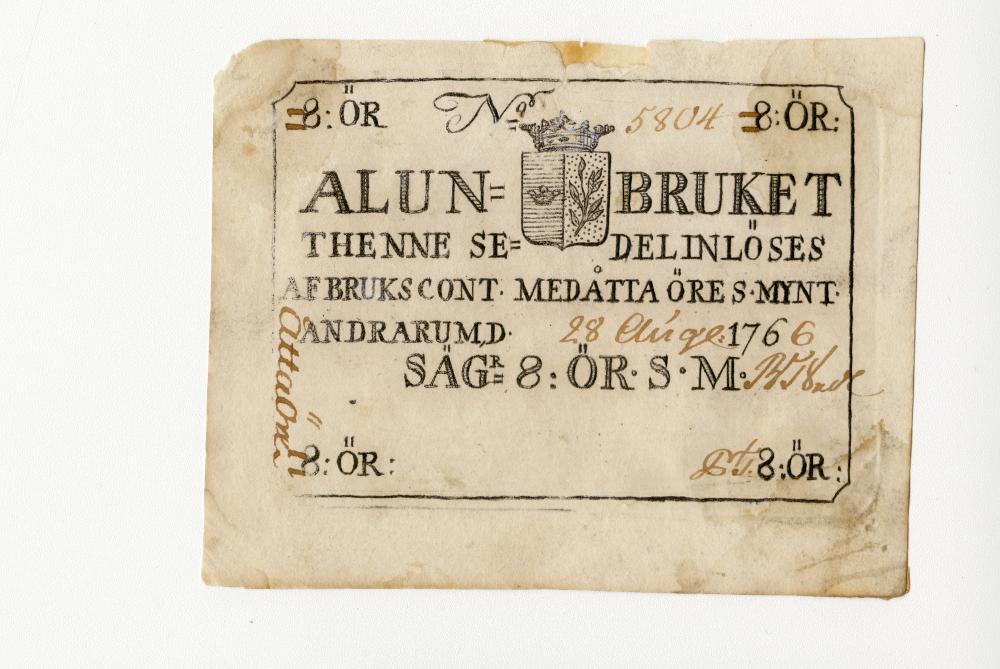 8: ÖR Nº 5804 8: ÖR:
ALUN= BRUKET
THENNE SE= DEL INLÖSES
AF BRUKS CONT· MED ÅTTA ÖRE S·MYNT·
ANDRARUM, D· 28 Aug: 1766
SÄGR= 8: ÖR· S·M·
Åtta Ör
8: ÖR: 8: ÖR: